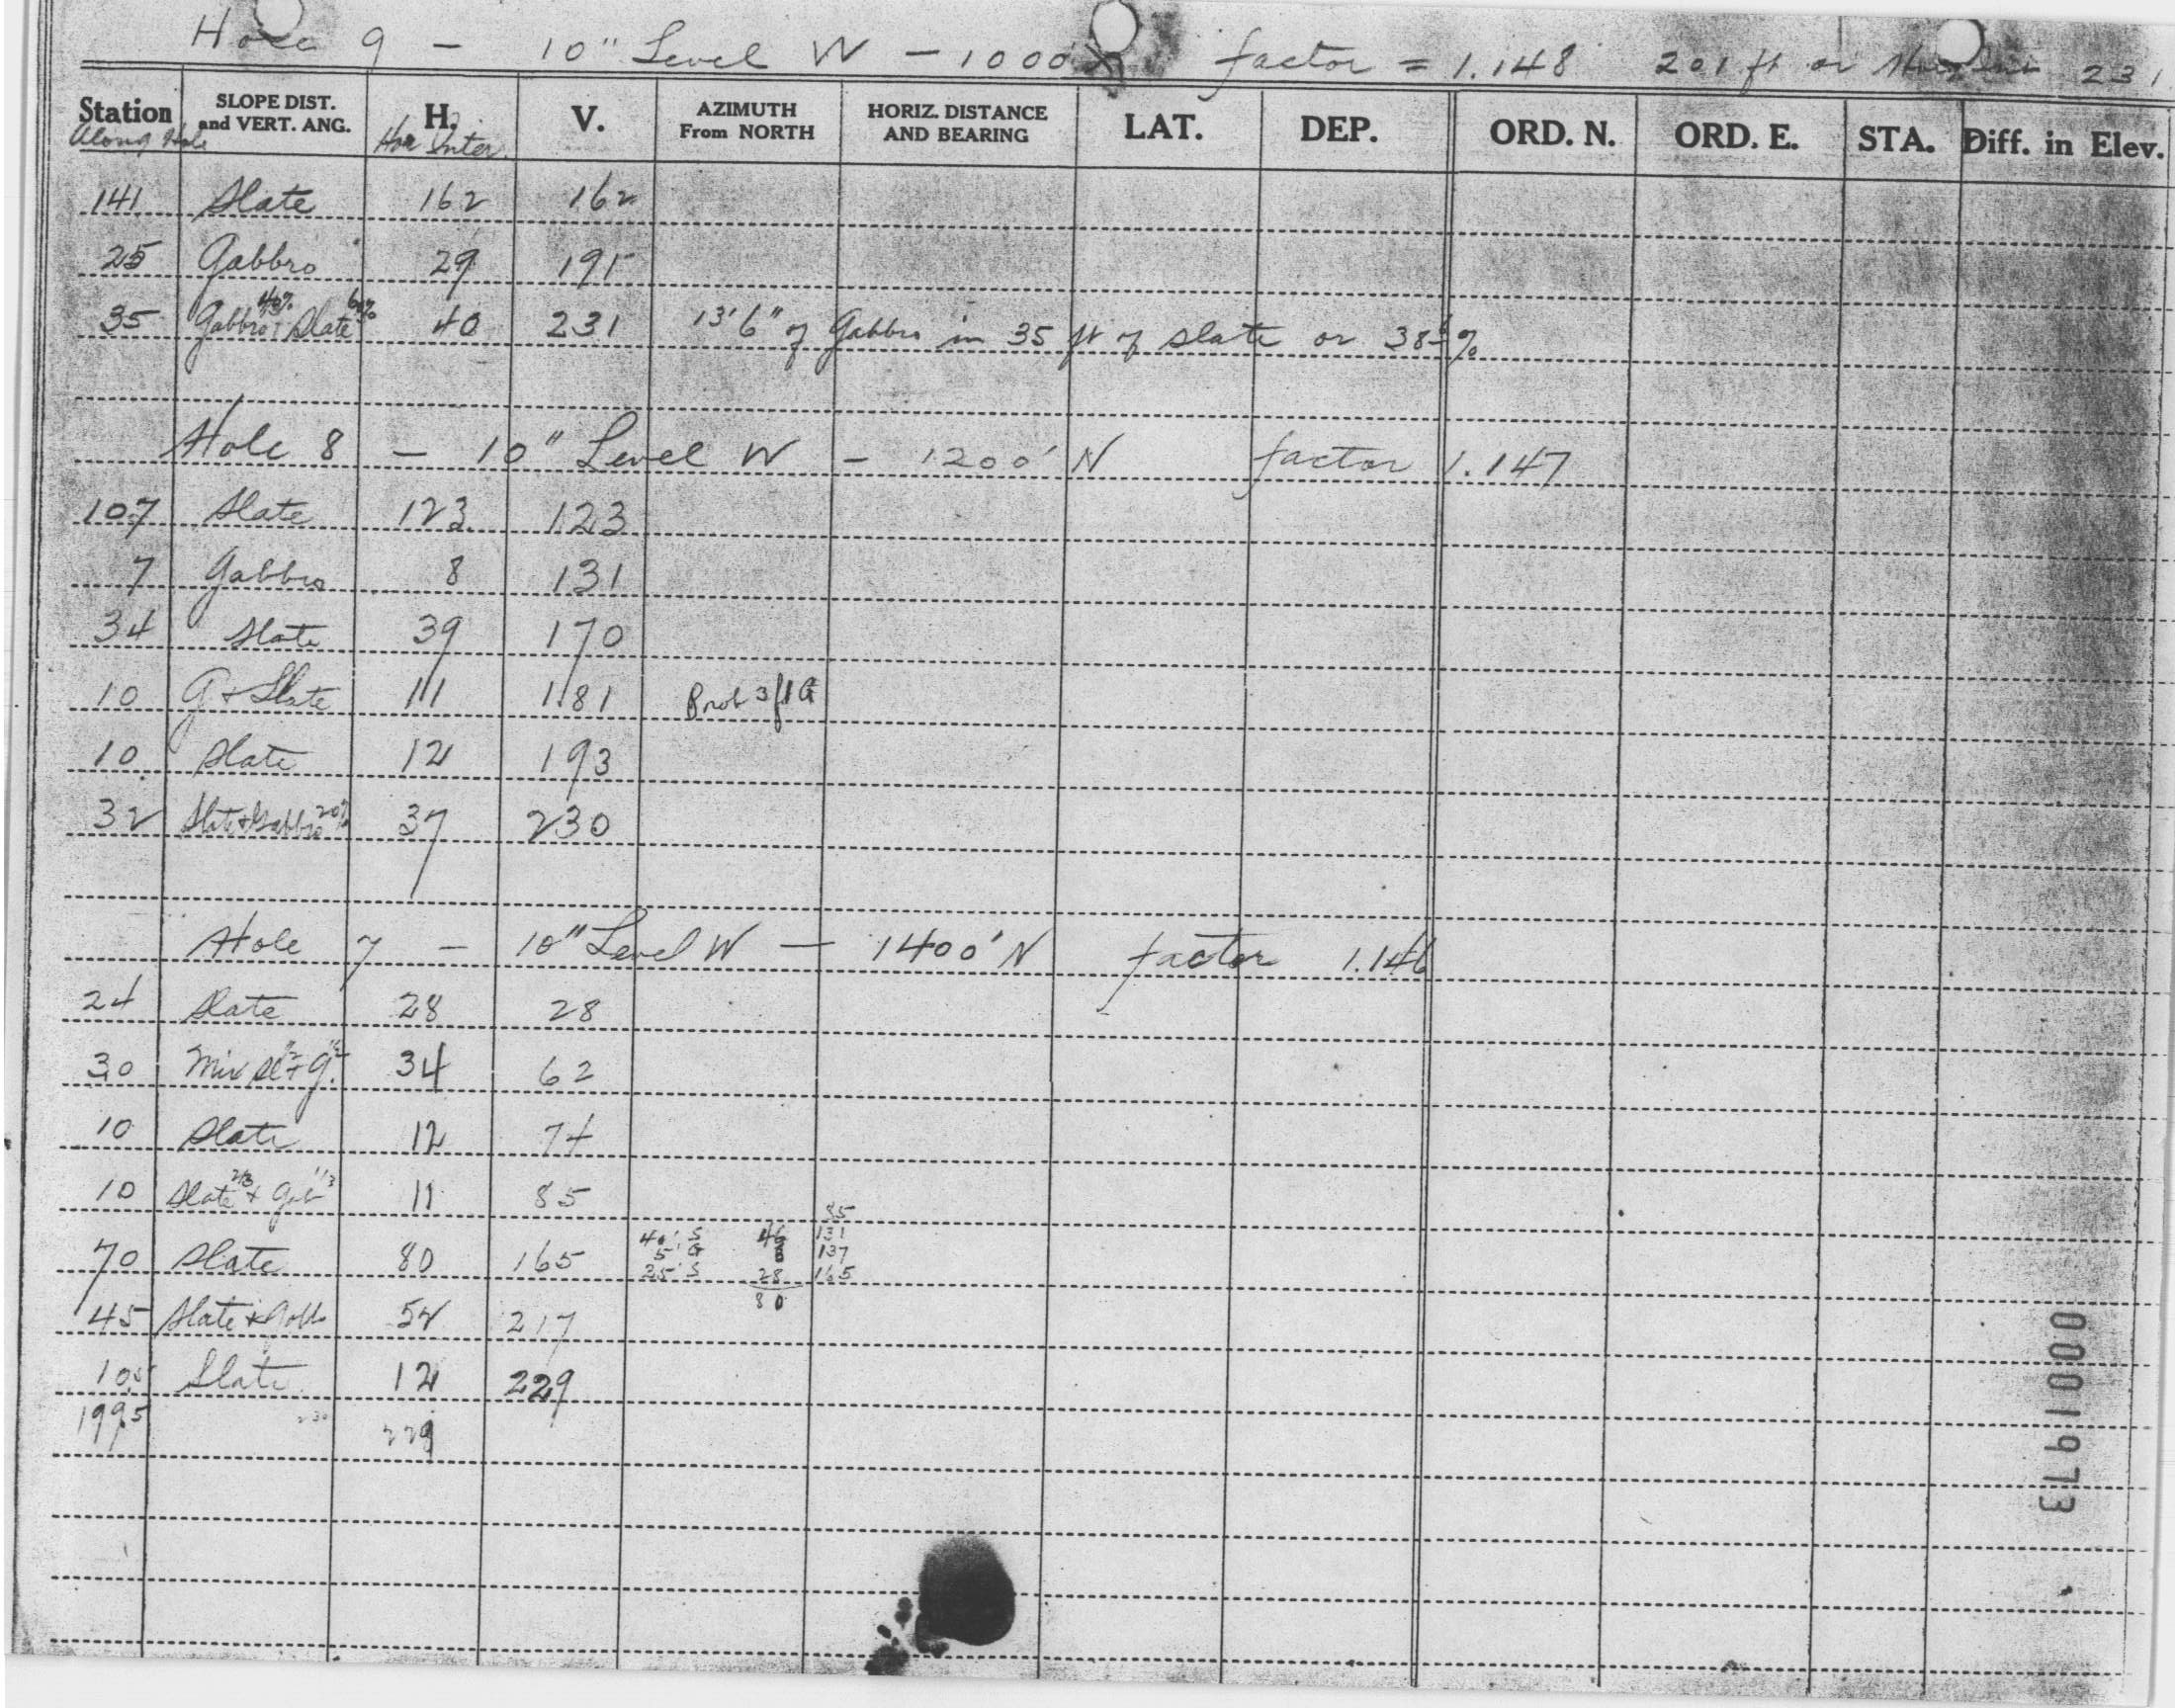 Hole 9 - 10" Level W - 1000' factor = 1.148 201 ft or 231
Station SLOPE DIST. and VERT. ANG. H. V. AZIMUTH From NORTH HORIZ. DISTANCE AND BEARING LAT. DEP. ORD. N. ORD. E. STA. Diff. in Elev.
Along Hole Hor Inter.
141 Slate 162 162
25 Gabbro 29 191
40% 60%
35 Gabbro + Slate 40 231 13'6" of Gabbro in 35 ft of slate or 38 %
Hole 8 - 10" Level W - 1200' N factor 1.147
107 Slate 123 123
7 Gabbro 8 131
34 Slate 39 170
10 G + Slate 11 181 Prob 3 ft G
10 Slate 12 193
32 Slat + Gabbro 20% 37 230
Hole 7 - 10" Level W - 1400' N factor 1.146
24 Slate 28 28
30 Mix Sl 1/2 + G 1/2 34 62
10 Slate 12 74
10 Slate 2/3 + Gab 1/3 11 85
85
40' S 46 131
70 Slate 80 165 5' G 137
25' S 28 165
80
45 Slate + Gabb 52 217
10.5 Slate 12 229
199.5 230 229
0001973